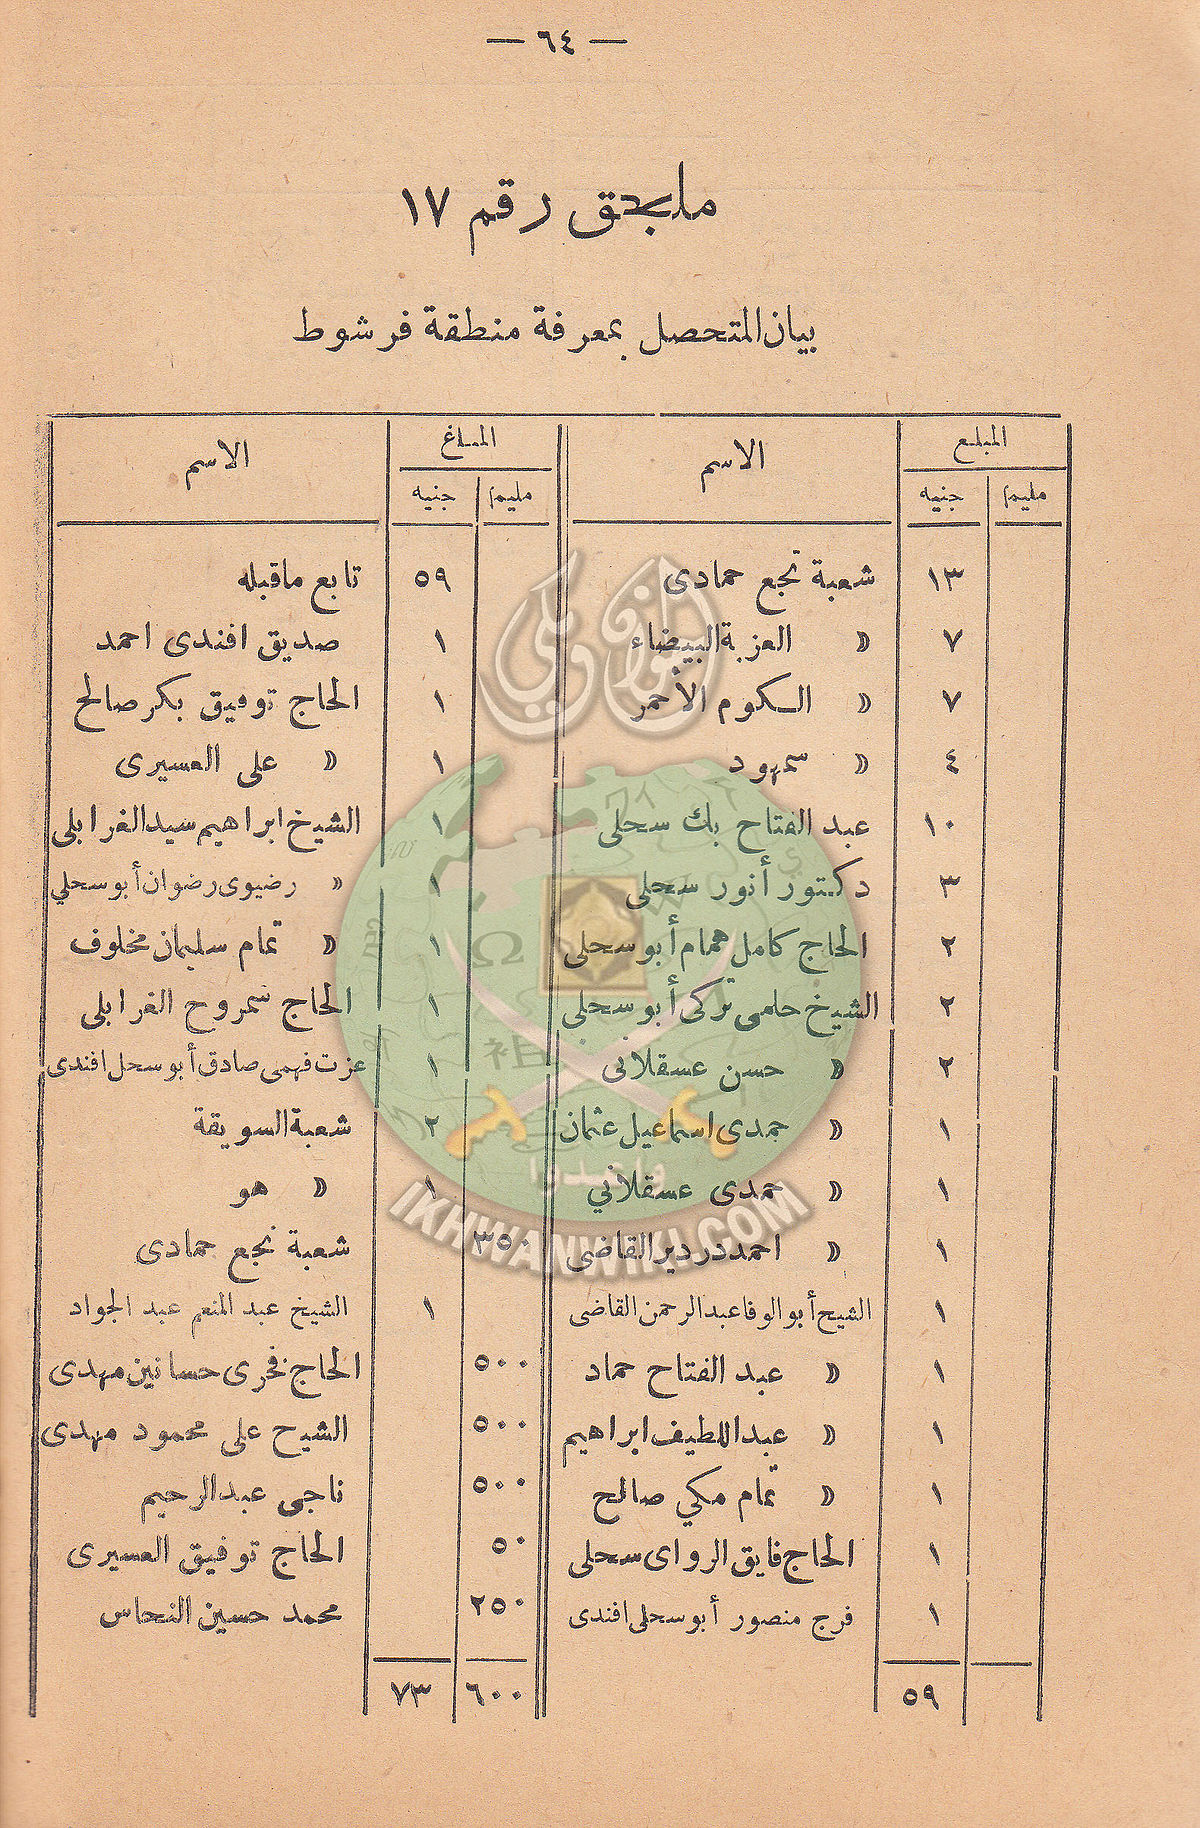 — ٦٤ —
ملحق رقم ١٧
بيان المتحصل بمعرفة منطقة فرشوط
المبلغ الاسم المبلغ الاسم
مليم جنيه مليم جنيه
١٣ شعبة نجع حمادى ٥٩ تابع ماقبله
٧ » العزبة البيضاء ١ صديق افندى احمد
٧ » الكوم الأحمر ١ الحاج توفيق بكر صالح
٤ » سمهود ١ » على العسيرى
١٠ عبد الفتاح بك سحلى ١ الشيخ ابراهيم سيد الغرابلى
٣ دكتور أنور سحلى ١ » رضيوى رضوان أبو سحلي
٢ الحاج كامل همام أبو سحلى ١ » تمام سليمان مخلوف
٢ الشيخ حلمى تركى أبو سحلى ١ الحاج سمروح الغرابلى
٢ » حسن عسقلانى ١ عزت فهمى صادق أبو سحل افندى
١ » حمدى اسماعيل عثمان ٢ شعبة السويقة
١ » حمدى عسقلاني ١ » هو
١ » احمد دردير القاضى ٣٥٠ شعبة نجع حمادى
١ الشيخ أبو الوفا عبد الرحمن القاضى ١ الشيخ عبد المنعم عبد الجواد
١ » عبد الفتاح حماد ٥٠٠ الحاج فخرى حسانين مهدى
١ » عبد اللطيف ابراهيم ٥٠٠ الشيخ على محمود مهدى
١ » تمام مكي صالح ٥٠٠ ناجى عبد الرحيم
١ الحاج فايق الرواى سحلى ٥٠ الحاج توفيق العسيرى
١ فرج منصور أبو سحلى افندى ٢٥٠ محمد حسين النحاس
٥٩ ٦٠٠ ٧٣
إخوان ويكي
وأعدوا
IKHWANWIKI.COM